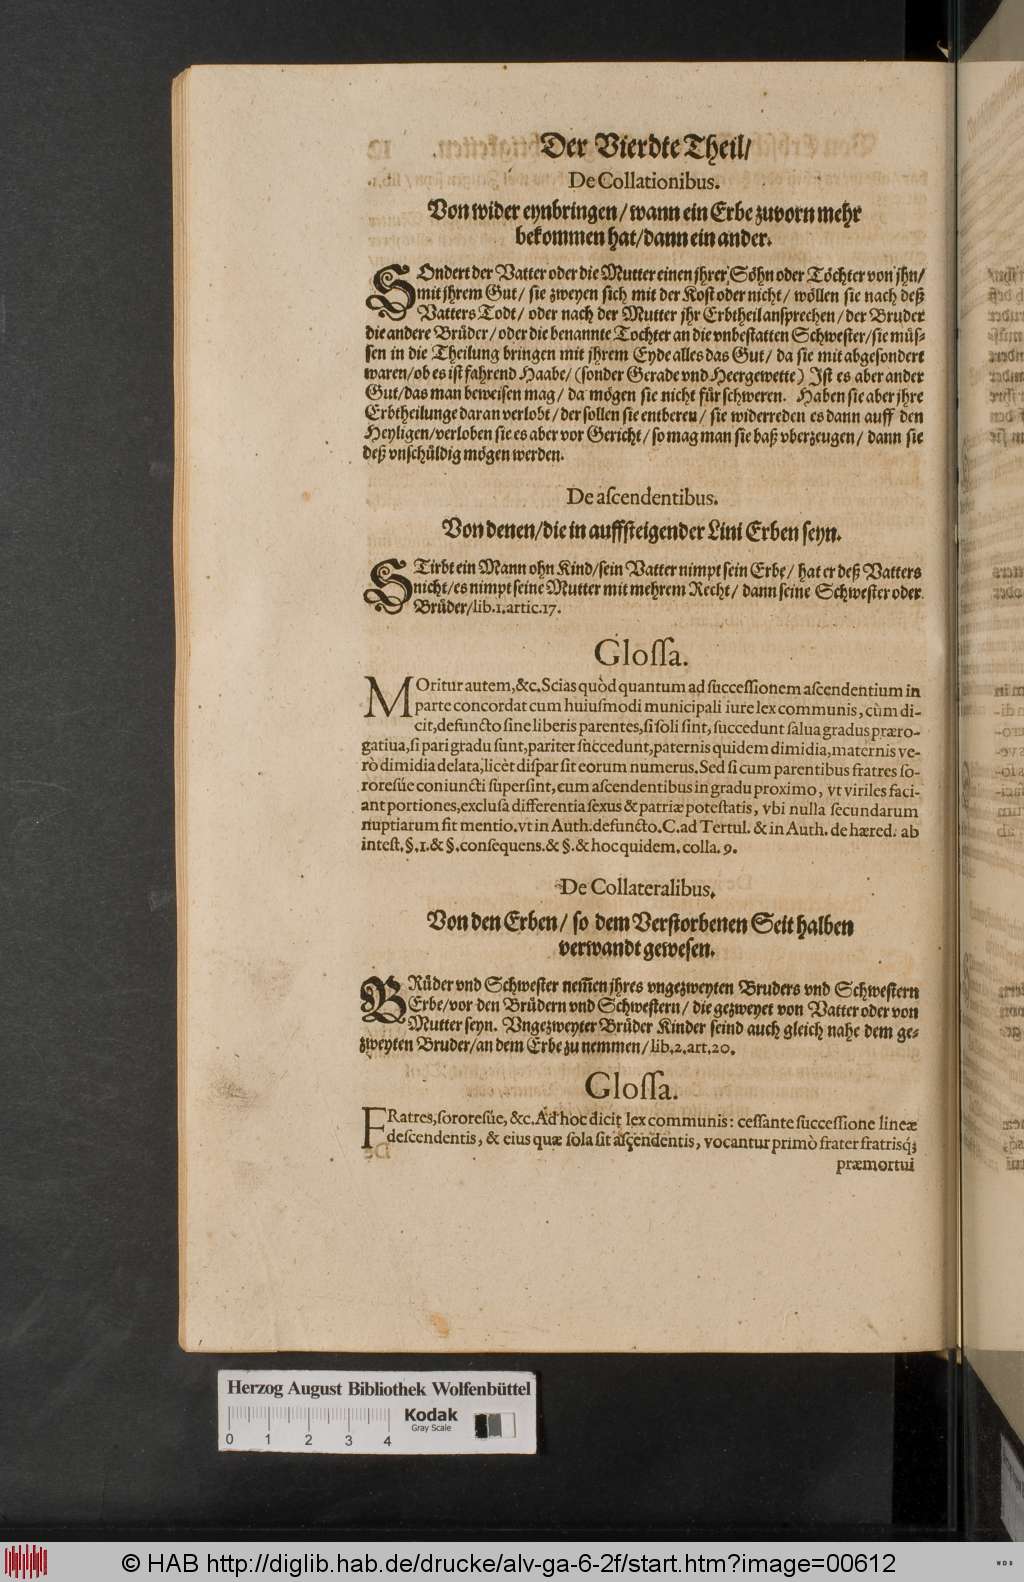 Der Vierdte Theil/
De Collationibus.
Von wider eynbringen/ wann ein Erbe zuvorn mehr
bekommen hat/ dann ein ander.
SOndert der Vatter oder die Mutter einen jhrer Söhn oder Töchter von jhn/
mit jhrem Gut/ sie zweyen sich mit der Kost oder nicht/ wöllen sie nach deß
Vatters Todt/ oder nach der Mutter jhr Erbtheil ansprechen/ der Bruder
die andere Brüder/ oder die benannte Tochter an die vnbestatten Schwester/ sie müs-
sen in die Theilung bringen mit jhrem Eyde alles das Gut/ da sie mit abgesondert
waren/ ob es ist fahrend Haabe/ (sonder Gerade vnd Heergewette) Ist es aber ander
Gut/ das man beweisen mag/ da mögen sie nicht für schweren. Haben sie aber jhre
Erbtheilunge daran verlobt/ der sollen sie entberen/ sie widerreden es dann auff den
Heyligen/ verloben sie es aber vor Gericht/ so mag man sie baß vberzeugen/ dann sie
deß vnschüldig mögen werden.
De ascendentibus.
Von denen/ die in auffsteigender Lini Erben seyn.
STirbt ein Mann ohn Kind/ sein Vatter nimpt sein Erbe/ hat er deß Vatters
nicht/ es nimpt seine Mutter mit mehrem Recht/ dann seine Schwester oder
Brüder/ lib. 1. artic. 17.
Glossa.
MOritur autem, &c. Scias quòd quantum ad successionem ascendentium in
parte concordat cum huiusmodi municipali iure lex communis, cùm di-
cit, defuncto sine liberis parentes, si soli sint, succedunt salua gradus præro-
gatiua, si pari gradu sunt, pariter succedunt, paternis quidem dimidia, maternis ve-
rò dimidia delata, licèt dispar sit eorum numerus. Sed si cum parentibus fratres so-
roresúe coniuncti supersint, cum ascendentibus in gradu proximo, vt viriles faci-
ant portiones, exclusa differentia sexus & patriæ potestatis, vbi nulla secundarum
nuptiarum fit mentio. vt in Auth. defuncto. C. ad Tertul. & in Auth. de hæred. ab
intest. §. 1. & §. consequens. & §. & hoc quidem. colla. 9.
De Collateralibus.
Von den Erben/ so dem Verstorbenen Seit halben
verwandt gewesen.
BRüder vnd Schwester nem̃en jhres vngezweyten Bruders vnd Schwestern
Erbe/ vor den Brüdern vnd Schwestern/ die gezweyet von Vatter oder von
Mutter seyn. Vngezweyter Brüder Kinder seind auch gleich nahe dem ge-
zweyten Bruder/ an dem Erbe zu nemmen/ lib. 2. art. 20.
Glossa.
FRatres, sororesúe, &c. Ad hoc dicit lex communis: cessante successione lineæ
descendentis, & eius quæ sola sit ascendentis, vocantur primò frater fratrisq́;
præmortui
Herzog August Bibliothek Wolfenbüttel
Kodak
Gray Scale
0 1 2 3 4
© HAB http://diglib.hab.de/drucke/alv-ga-6-2f/start.htm?image=00612